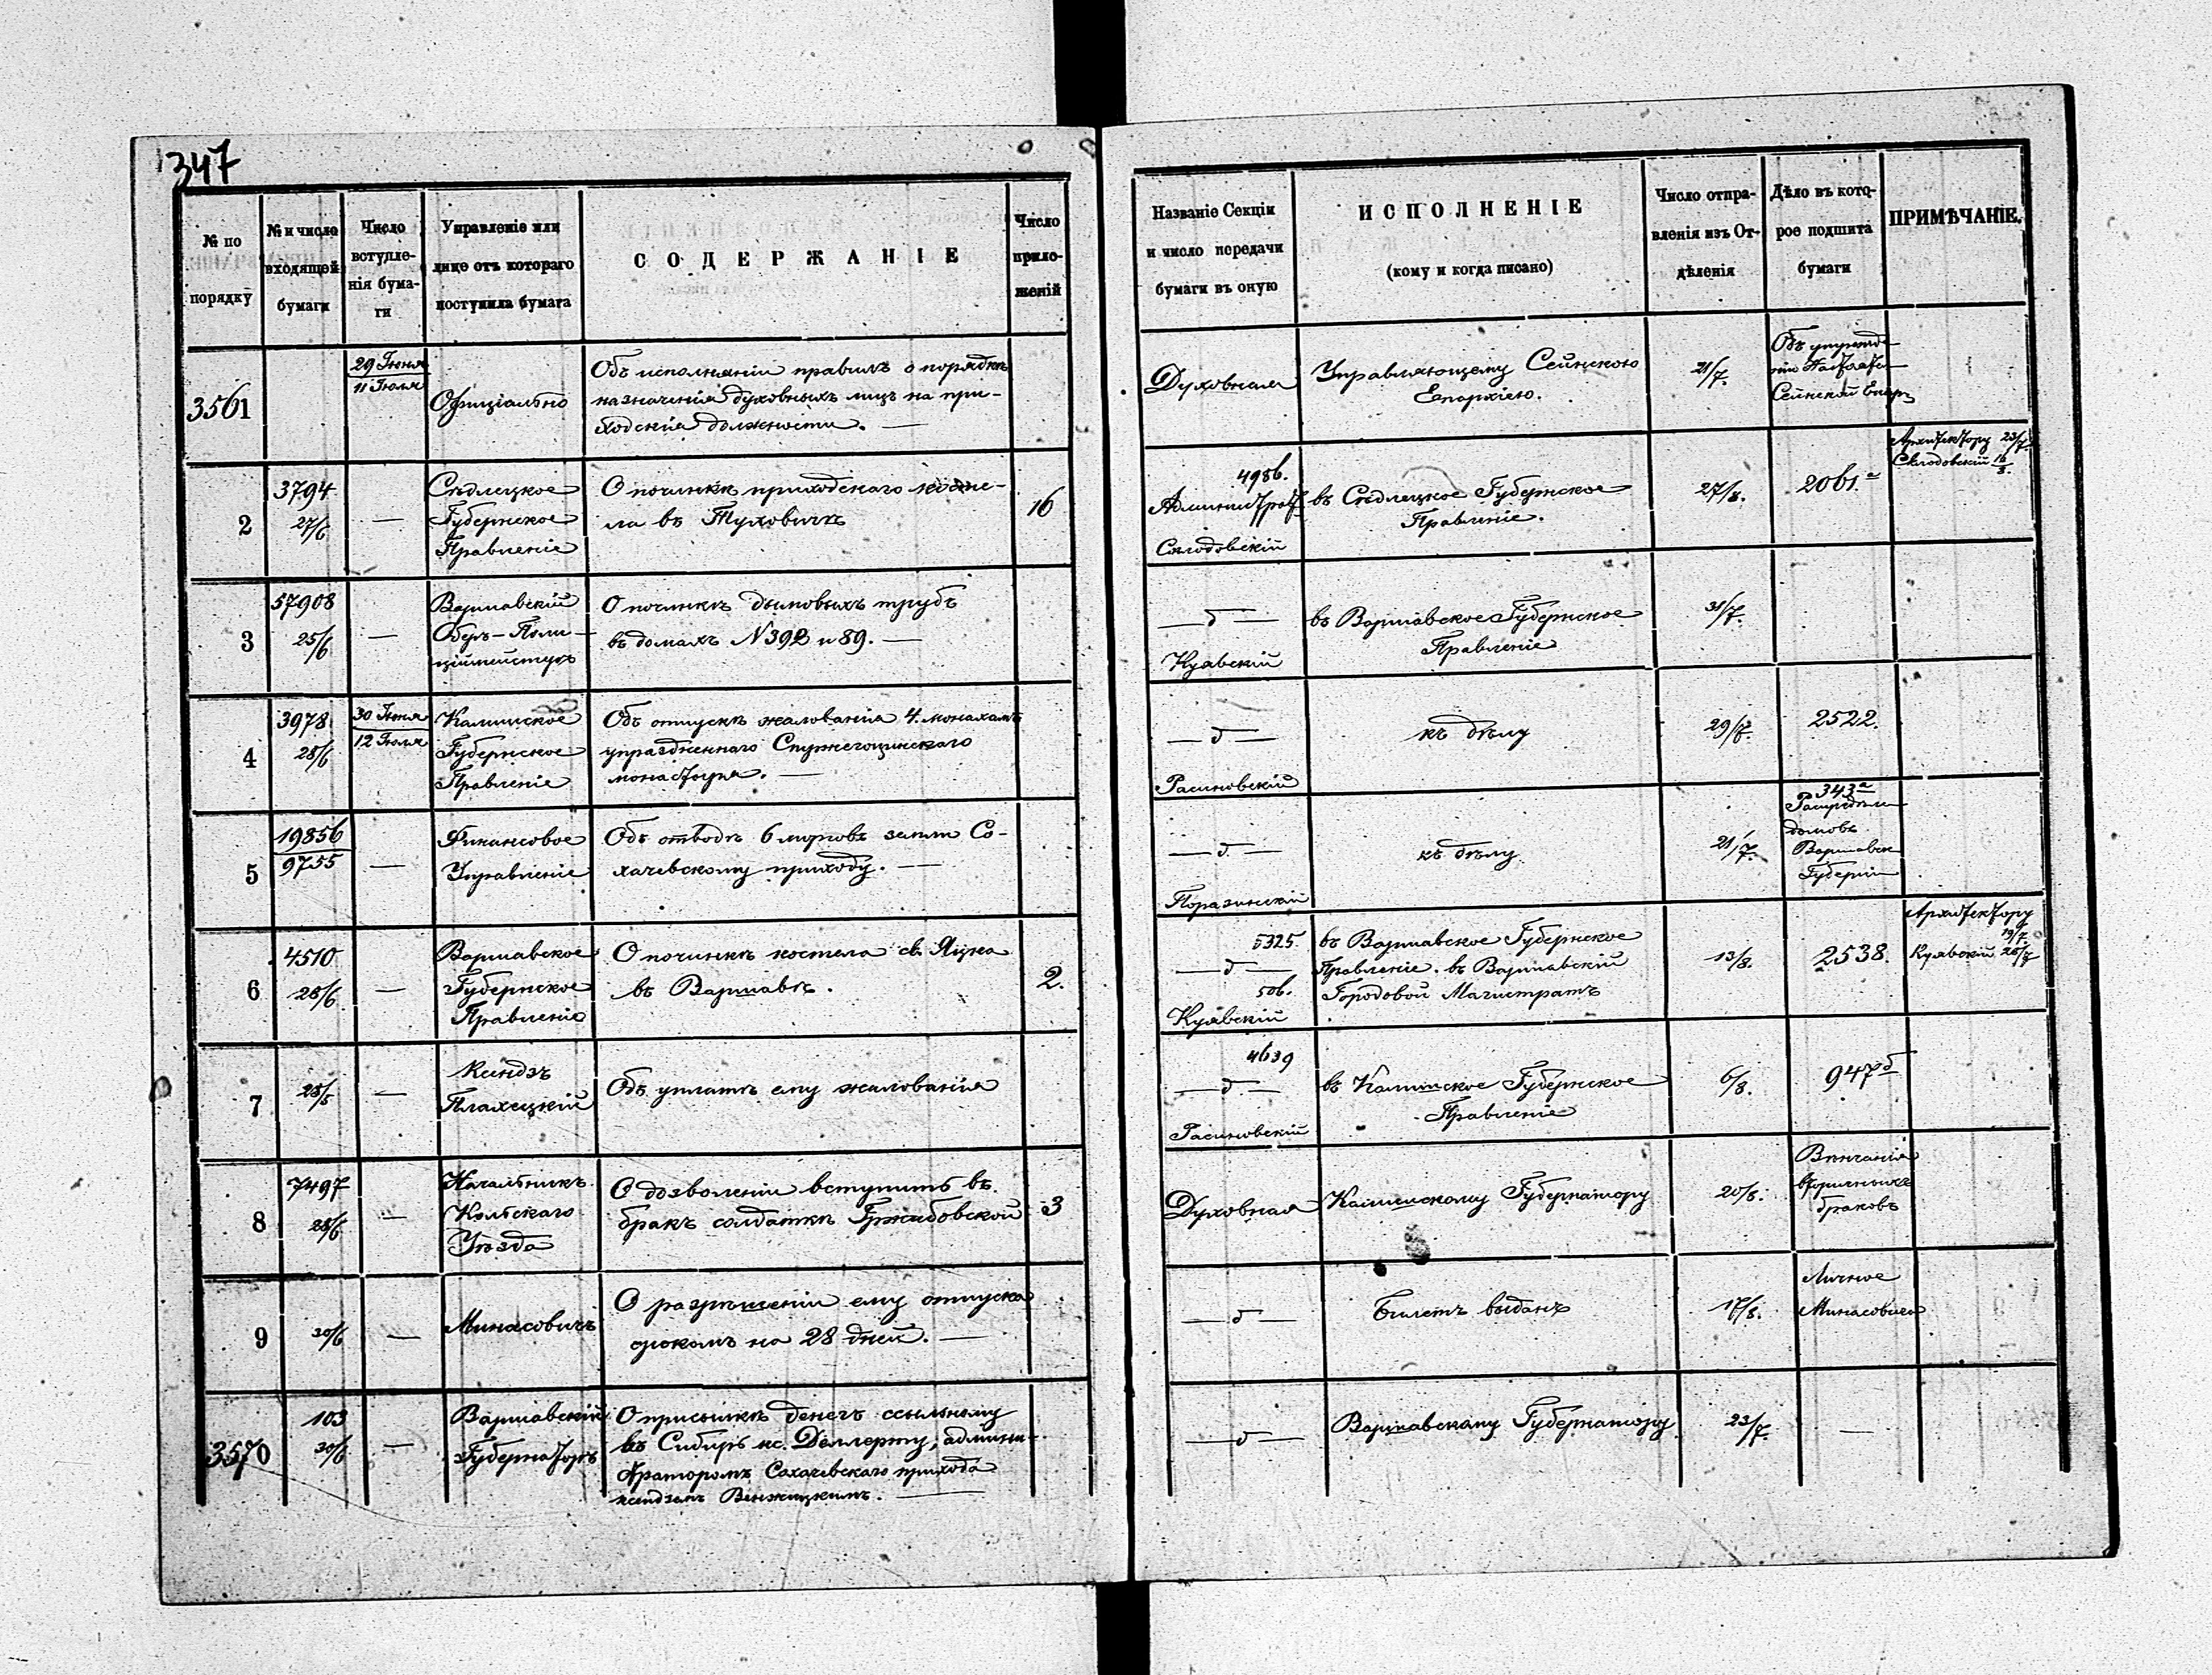 347
№ по
порядку
№ и число
входящей
бумаги
Число
вступле-
нія бума-
ги
Управленіе или
лице отъ котораго
поступила бумага
СОДЕРЖАНІЕ
Число
прило-
женій
Названіе Секціи
и число передачи
бумаги въ оную
ИСПОЛНЕНІЕ
(кому и когда писано)
Число отпра-
вленія изъ От-
дѣленія
Дѣло въ кото-
рое подшита
бумаги
ПРИМѢЧАНІЕ.
3561
29 Іюня
11 Іюля
Офиціально
Объ исполненіи правилъ о порядкѣ
назначенія духовныхъ лицъ на при-
ходскія должности. —
Духовная
Управляющему Сейнскою
Епархіею.
21/7.
Объ
Сейнской Епар
2
3794
27/6
—
Сѣдлецкое
Губернское
Правленіе
О починкѣ приходскаго косте-
ла въ Туховичѣ
16
4986.
Административ
Солодовскій
въ Сѣдлецкое Губернское
Правленіе.
27/8.
2061.а
Архитектору 23/7.
Солодовскій 16/8.
3
57908
25/6
—
Варшавскій
Оберъ-Поли-
ціймейстеръ
О починкѣ дымовыхъ трубъ
въ домахъ N 392 и 89. —
— д —
Куявскій
въ Варшавское Губернское
Правленіе
31/7.
4
3978
28/6
30 Іюня
12 Іюля
Калишское
Губернское
Правленіе
Объ отпускѣ жалованія 4. монахамъ
упраздненнаго
монастыря. —
— д —
Расиновскій
къ дѣлу
29/7.
2522.
5
19856
9755
—
Финансовое
Управленіе
Объ отводѣ 6 морговъ земли Со-
хачевскому приходу. —
— д. —
Поразинскій
къ дѣлу
21/7.
343а
домовъ
Варшавск
Губерніи
6
4510
28/6
—
Варшавское
Губернское
Правленіе
О починкѣ костела св. Яцка
въ Варшавѣ.
2.
5325.
— д —
506.
Куявскій
въ Варшавское Губернское
Правленіе. въ Варшавскій
Городовой Магистратъ
13/8.
2538.
Архитектору
19/7.
Куявскій 26/7
7
28/5
—
Ксендзъ
Плахецкій
Объ уплатѣ ему жалованія
4639
— д. —
Расиновскій
въ Калишское Губернское
Правленіе
6/8.
947б
8
7497
28/6
—
Начальникъ
Кольскаго
Уѣзда
О дозволеніи вступить въ
бракъ солдаткѣ Гржибовской
3
Духовная
Калишскому Губернатору
20/8.
Вѣнчанія
вторичныхъ
браковъ
9
30/6
—
Минасовичъ
О разрѣшеніи ему отпуска
срокомъ на 28 дней. —
— д —
Билетъ выданъ
17/8.
Личное
Минасовича
3570
103
30/6
—
Варшавскій
Губернаторъ
О присылкѣ денегъ ссыльному
въ Сибирь кс. Деллерту, админи-
страторомъ Сохачевскаго прихода
ксендзомъ
— д —
Варшавскому Губернатору
23/7.
—